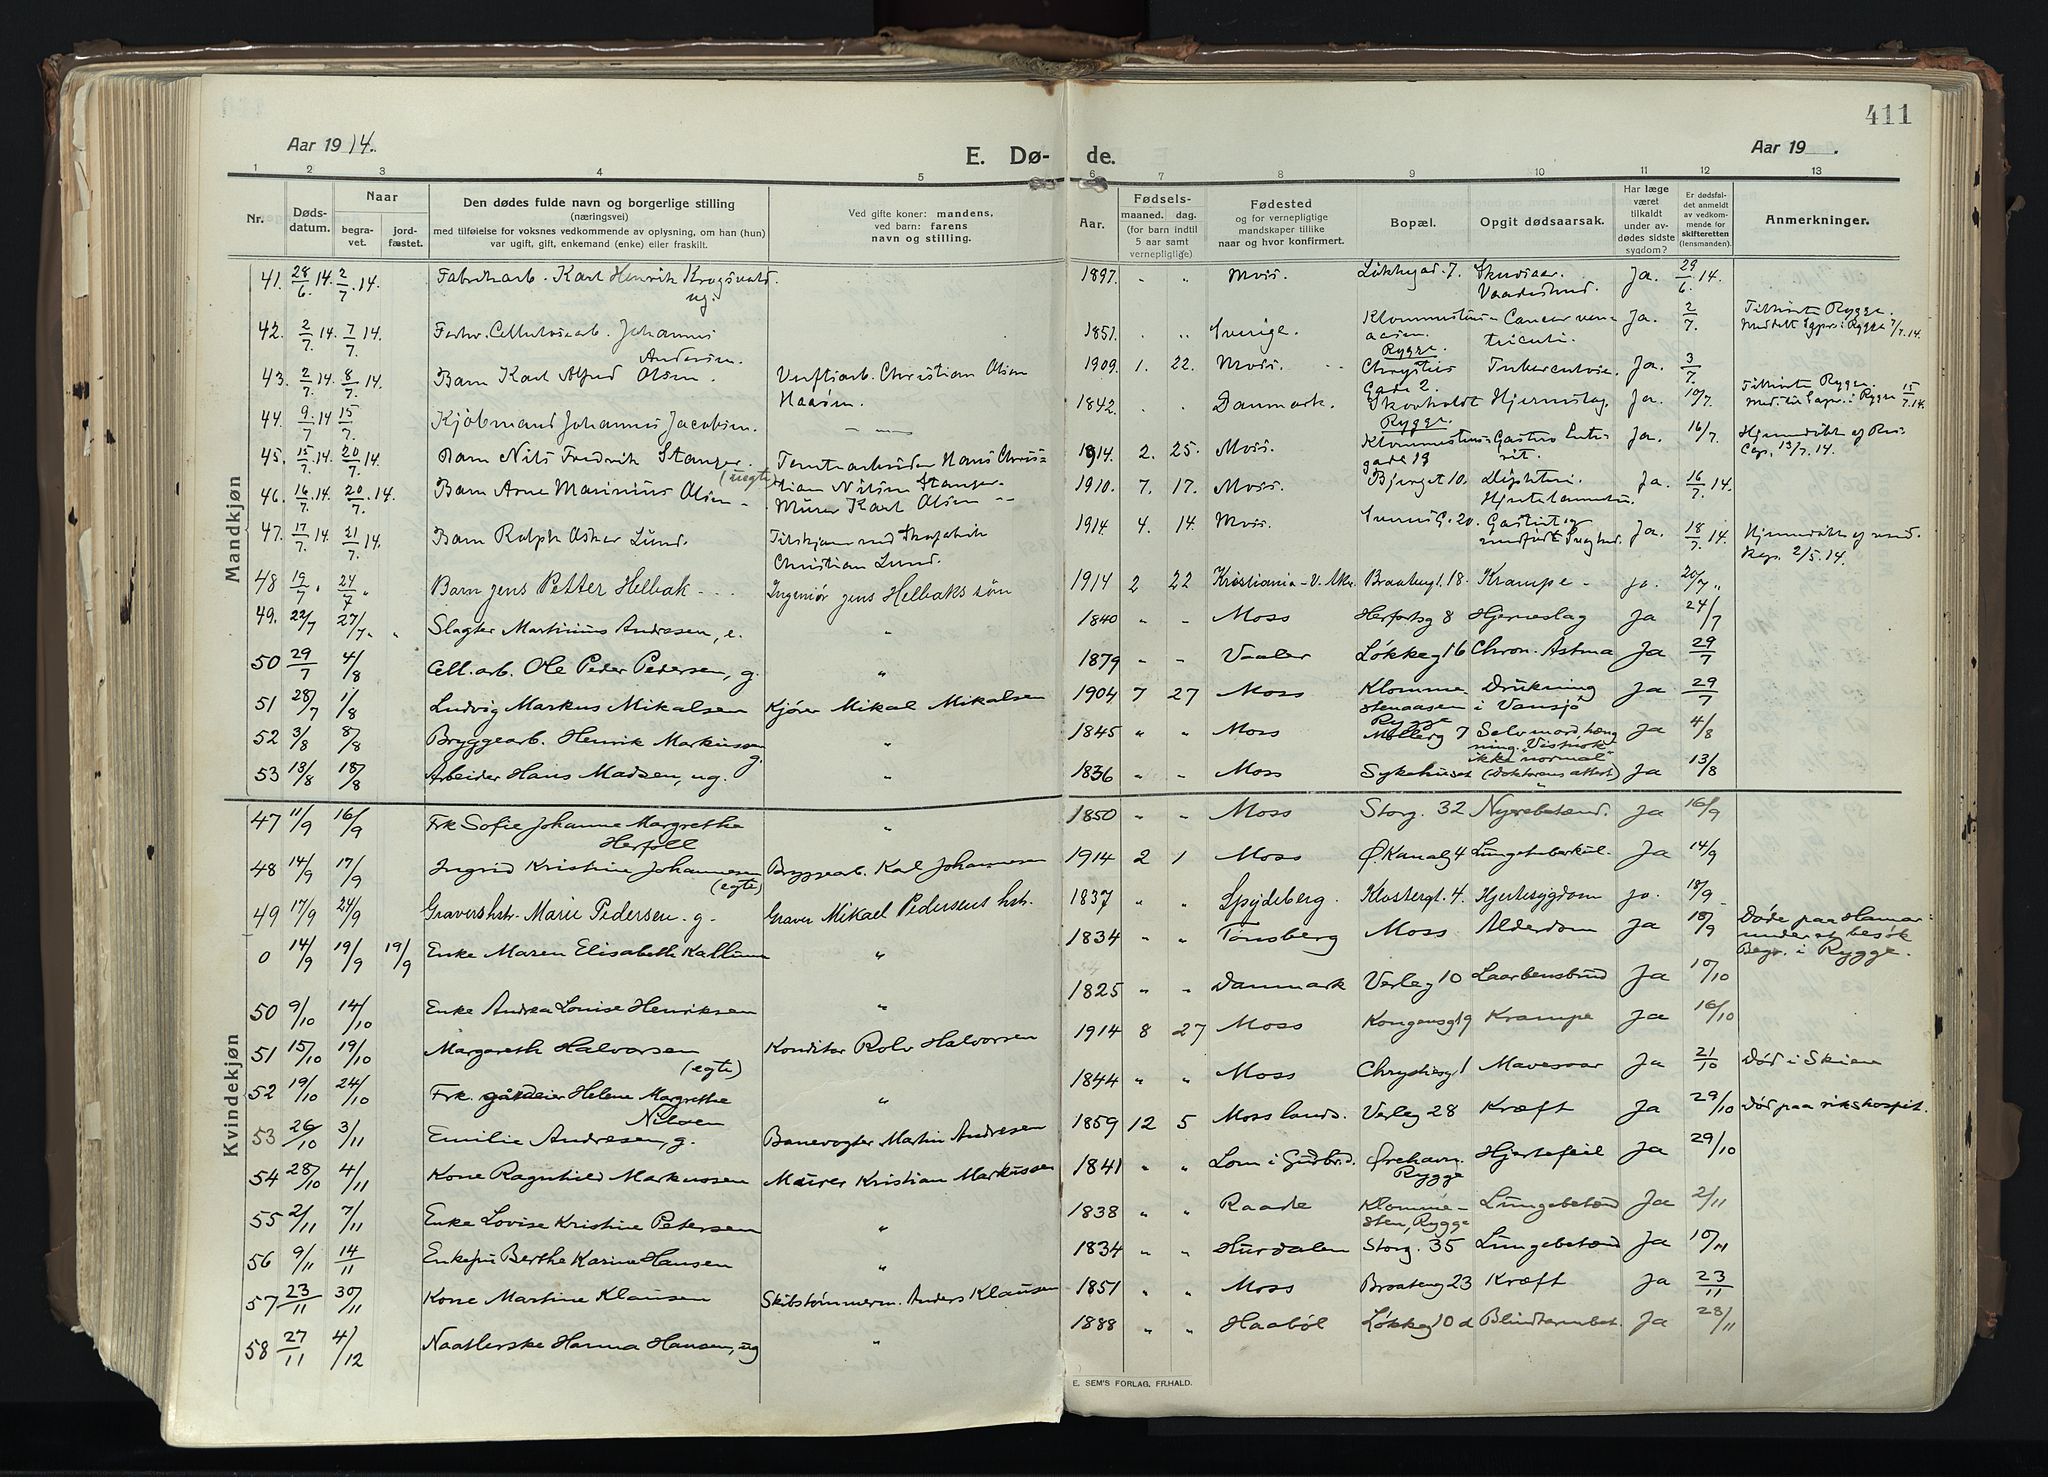 411
Aar 1914.
E. Dø-
de.
Aar 19 .
1 2 3 4 5 6 7 8 9 10 11 12 13
Nr.
Døds-
datum.
Naar
begra-
vet.
jord-
fæstet.
Den dødes fulde navn og borgerlige stilling
(næringsvei)
med tilføielse for voksnes vedkommende av oplysning, om han (hun)
var ugift, gift, enkemand (enke) eller fraskilt.
Ved gifte koner: mandens.
ved barn: farens
navn og stilling.
Aar.
Fødsels-
maaned. dag.
(for barn indtil
5 aar samt
vernepligtige)
Fødested
og for vernepligtige
mandskaper tillike
naar og hvor konfirmert.
Bopæl.
Opgit dødsaarsak.
Har læge
været
tilkaldt
under av-
dødes sidste
sygdom?
Er dødsfal-
det anmeldt
av vedkom-
mende for
skifteretten
(lensmanden).
Anmerkninger.
Mandkjøn
41. 28/6 14. 2/7 14. Fabrikarb. Karl Henrik
ug. 1897. " " Moss. 7. Ja. 29/6 14.
42. 2/7 14. 7/7 14. Johannes
Andersen. 1851. " " Sverige. Rygge. Cancer Ja. 2/7. Rygge 7/7.14.
43. 2/7 14. 8/7 14. Barn Karl Alfred Olsen. Christian Olsen
1909. 1. 22. Moss. Gade 2. Ja. 3/7.
44. 9/7 14 15/7. Johannes Jacobsen. 1842. " " Danmark. Rygge. Hjerneslag. Ja. 10/7. Rygge 15/7.14.
45. 15/7 14. 20/7 14. Barn Nils Fredrik Stanger. (uegte) Hans Chris-
tian Nilsen Stanger. 1914. 2. 25. Moss. Gastro Ente-
rit. Ja. 16/7.
46. 16/7 14. 20/7 14. Barn Arne Marinius Olsen Murer Karl Olsen 1910. 7. 17. Moss. Bjerget 10. Ja. 16/7 14.
47. 17/7 14. 21/7 14. Barn Ralph Oskar Lund. Christian Lund. 1914. 4. 14. Moss. 20. Ja. 18/7 14. 2/5.14.
48 19/7 " 24/7 " Barn Jens Petter Helbak Ingeniør Jens Helbaks søn 1914 2 22 Kristiania - V. Akr. Braateng. 18. Krampe - ja. 20/7 "
49. 22/7 27/7 " " Slagter Martinius Andresen, e. " 1840 " " Moss Herfortsg 8 Hjerneslag Ja 24/7
50 29/7 4/8 Cell. arb. Ole Peder Pedersen, g. " 1879 " " Vaaler Løkkeg 16 Chron. Astma Ja 29/7
51 28/7 1/8 Ludvig Markus Mikalsen Kjører Mikal Mikalsen 1904 7 27 Moss Klomme-
stenaasen
Rygge Drukning
i Vansjø Ja 29/7
52 3/8 8/8 Bryggearb. Henrik Markussen
g. " 1845 " " Moss Møllerg 7 Selvmord, hæng
ning. "Vistnok
ikke normal"
(Doktorens attest) Ja 4/8
53 13/8 18/8 Arbeider Hans Madsen, ug. " 1836 " " Moss Sykehuset " Ja 13/8
Kvindekjøn
47 11/9 16/9 Frk Sofie Johanne Margrethe
Herföll " 1850 " " Moss Storg. 32 Nyrebetænd. Ja 16/9
48 14/9 17/9 Ingrid Kristine Johannesen
(egte) Bryggearb. Karl Johannesen 1914 2 1 Moss Ø. Kanalg 4 Lungetuberkul. Ja 14/9
49 17/9 24/9 Gravershstr. Marie Pedersen. g. Graver Mikael Pedersens hstr. 1837 " " Spydeberg. Klostergt. 4. Hjertesygdom ja. 18/9
0 14/9 19/9 19/9 Enke Maren Elisabeth Kallum " 1834 " " Tønsberg Moss Alderdom Ja 18/9 Døde paa Hamar
under et besøk
Begr. i Rygge.
50 9/10 14/10 Enke Andrea Louise Henriksen " 1825 " " Danmark Verleg 10 Laarbensbrud Ja 10/10
51 15/10 19/10 Margareth Halvorsen
(egte) Konditor Rolv Halvorsen 1914 8 27 Moss Kongensg 19 Krampe Ja 16/10
52 19/10 24/10 Frk. gårdeier Helene Margrethe
Nilsen " 1844 " " Moss Chrystiesg 1 Mavesaar Ja 21/10 Död i Skien
53 26/10 3/11 Emilie Andresen, g. Banevogter Martin Andresen 1859 12 5 Moss lands. Verleg 28 Kræft Ja 29/10 Död paa rikshospit.
54 28/10 4/11 Kone Ragnhild Markussen Maurer Kristian Markussen 1841 " " Lom i Gudbrd. Ørehavn.
Rygge Hjertefeil Ja 29/10
55 2/11 7/11 Enke Lovise Kristine Petersen " 1838 " " Raade Klomme-
sten, Rygge Lungebetænd Ja 2/11
56 9/11 14/11 Enkefru Berthe Karine Hansen " 1834 " " Hurdalen Storg. 35 Lungebetænd Ja 10/11
57 23/11 30/11 Kone Martine Klausen Skibstømmerm. Anders Klausen 1851 " " Moss Braateng 23 Kræft Ja 23/11
58 27/11 4/12 Naatlerske Hanna Hansen, ug " 1888 " " Haabøl Løkkeg 10 d Blindtarmbet. Ja 28/11
E. SEM'S FORLAG, FR.HALD.